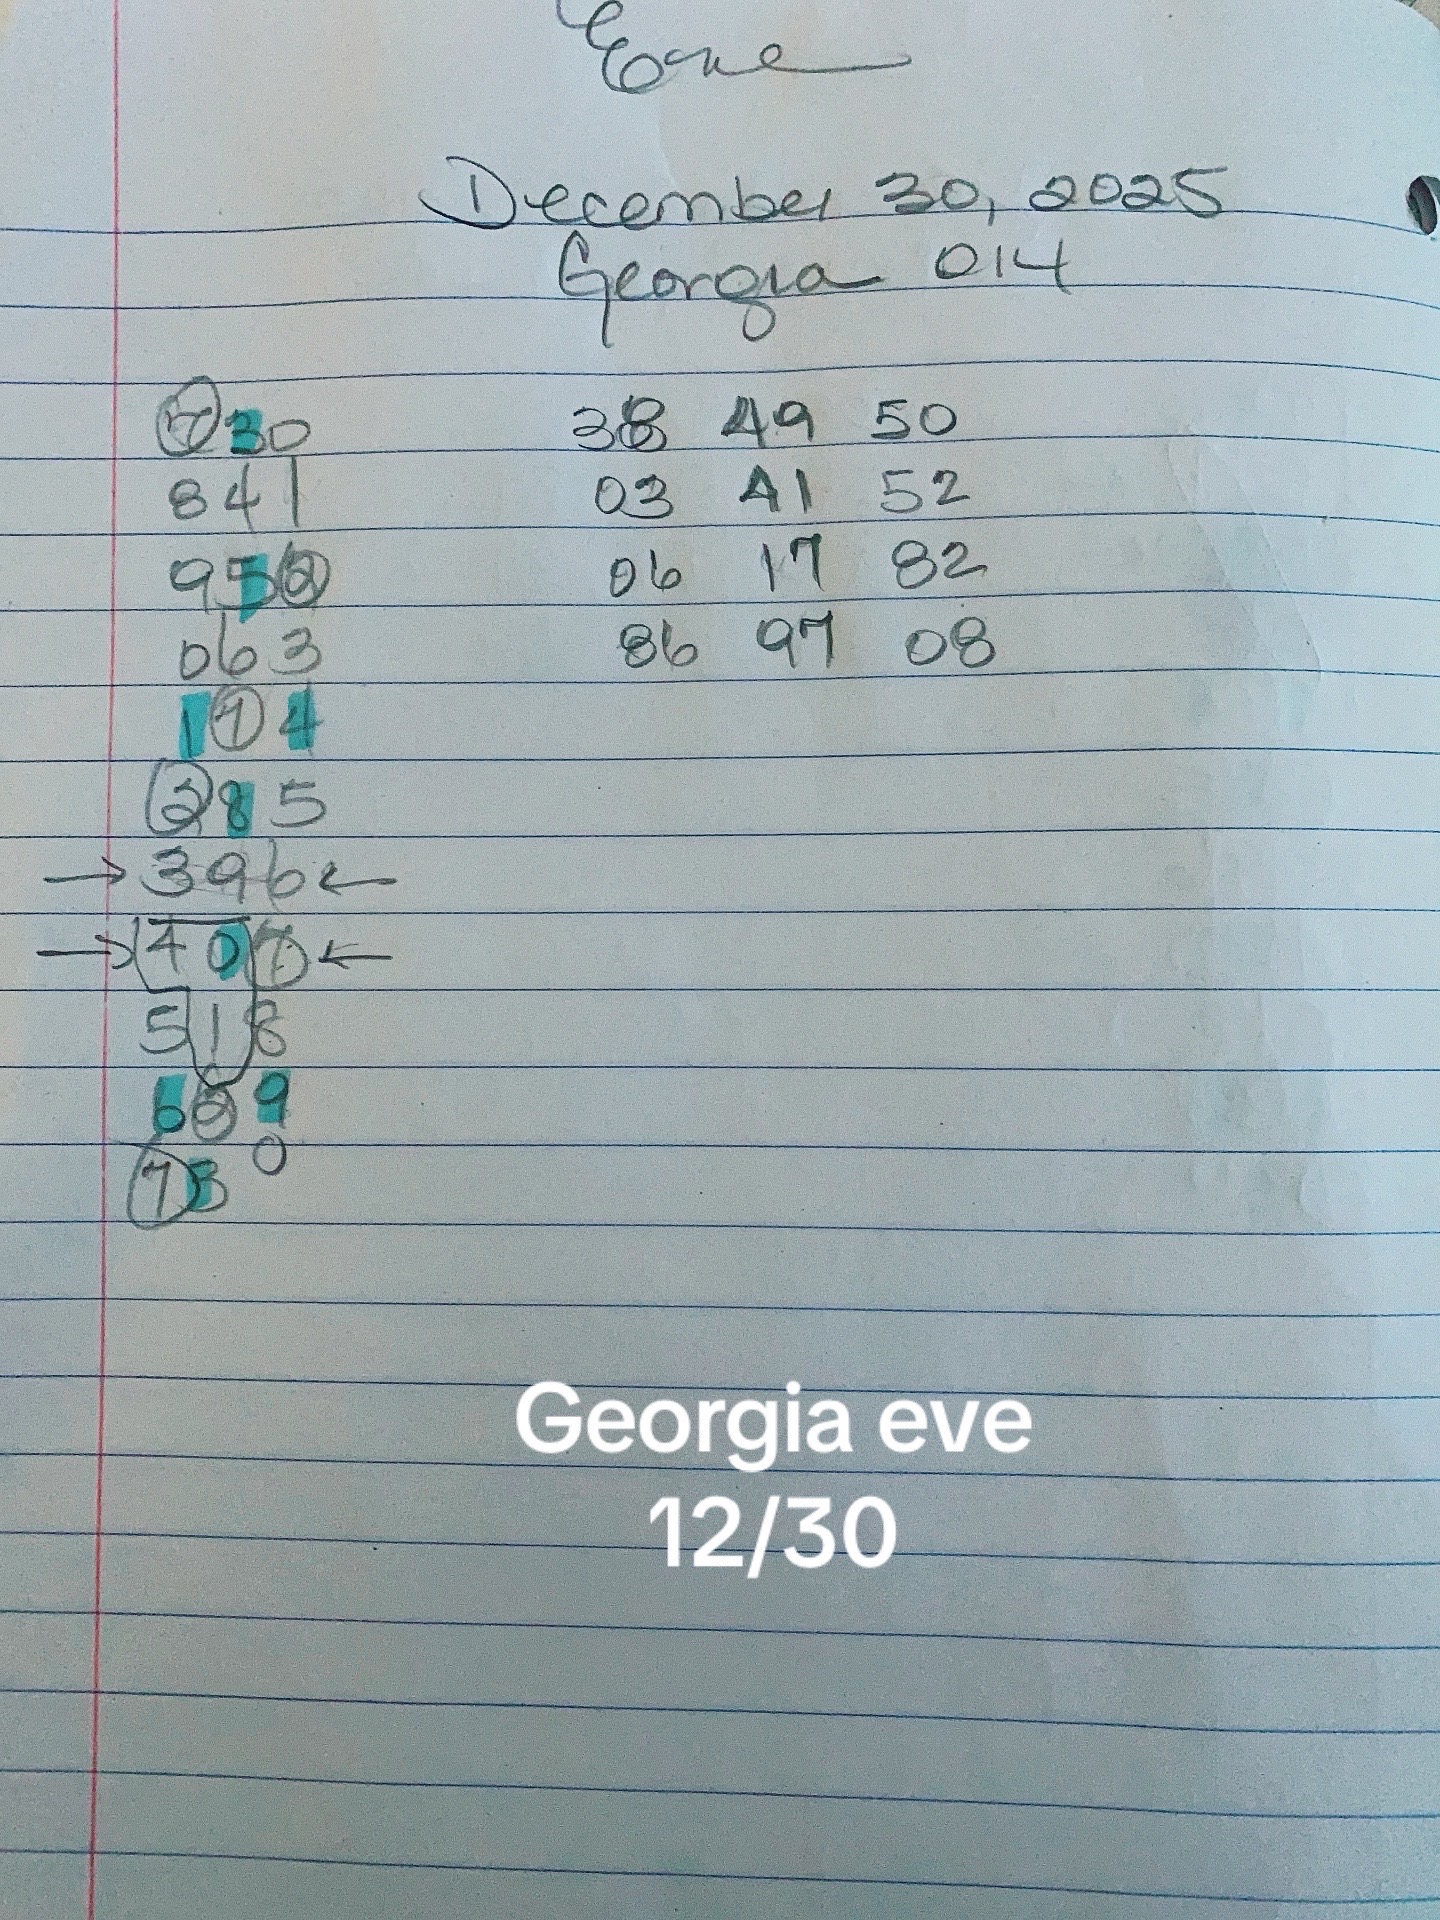 Eve
December 30, 2025
Georgia 014
730
841
952
063
174
285
→ 396 ←
→ 407 ←
518
629
730
38 49 50
03 41 52
06 17 82
86 97 08
Georgia eve
12/30